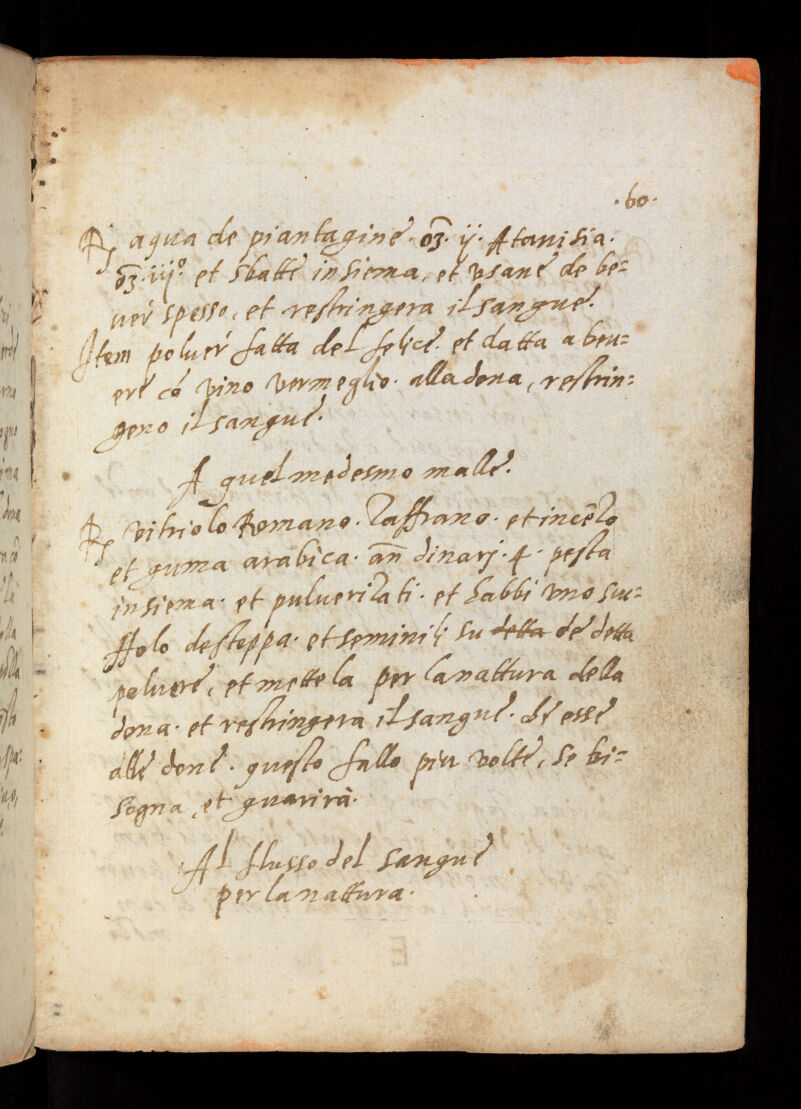 ·60·
℞ aqua de piantagine· oʒ· ij· Atanisia·
oʒ· iijº et sbatte insiema, et usane de be=
uer spesso, et restringera il sangue·
Item poluer fatta del felice· et datta a beu=
ere cō vino vermeglio· alla dona, restrin=
geno il sangue·
A quel medesmo malle·
℞ vitriolo Romano· Zaffrano· et incēzo
et guma arabica· an̄ dinarj· 4· pesta
insiema· et puluerizati· et habbi uno suf=
ffolo de stoppa· et seminili su detta de detta
poluere, et mettela per la nattura della
dona· et restringera il sangue· che esse
alle done· questo fallo piu volte, se bi=
sogna, et guarirà·
Al flusso del sangue
per la nattura·